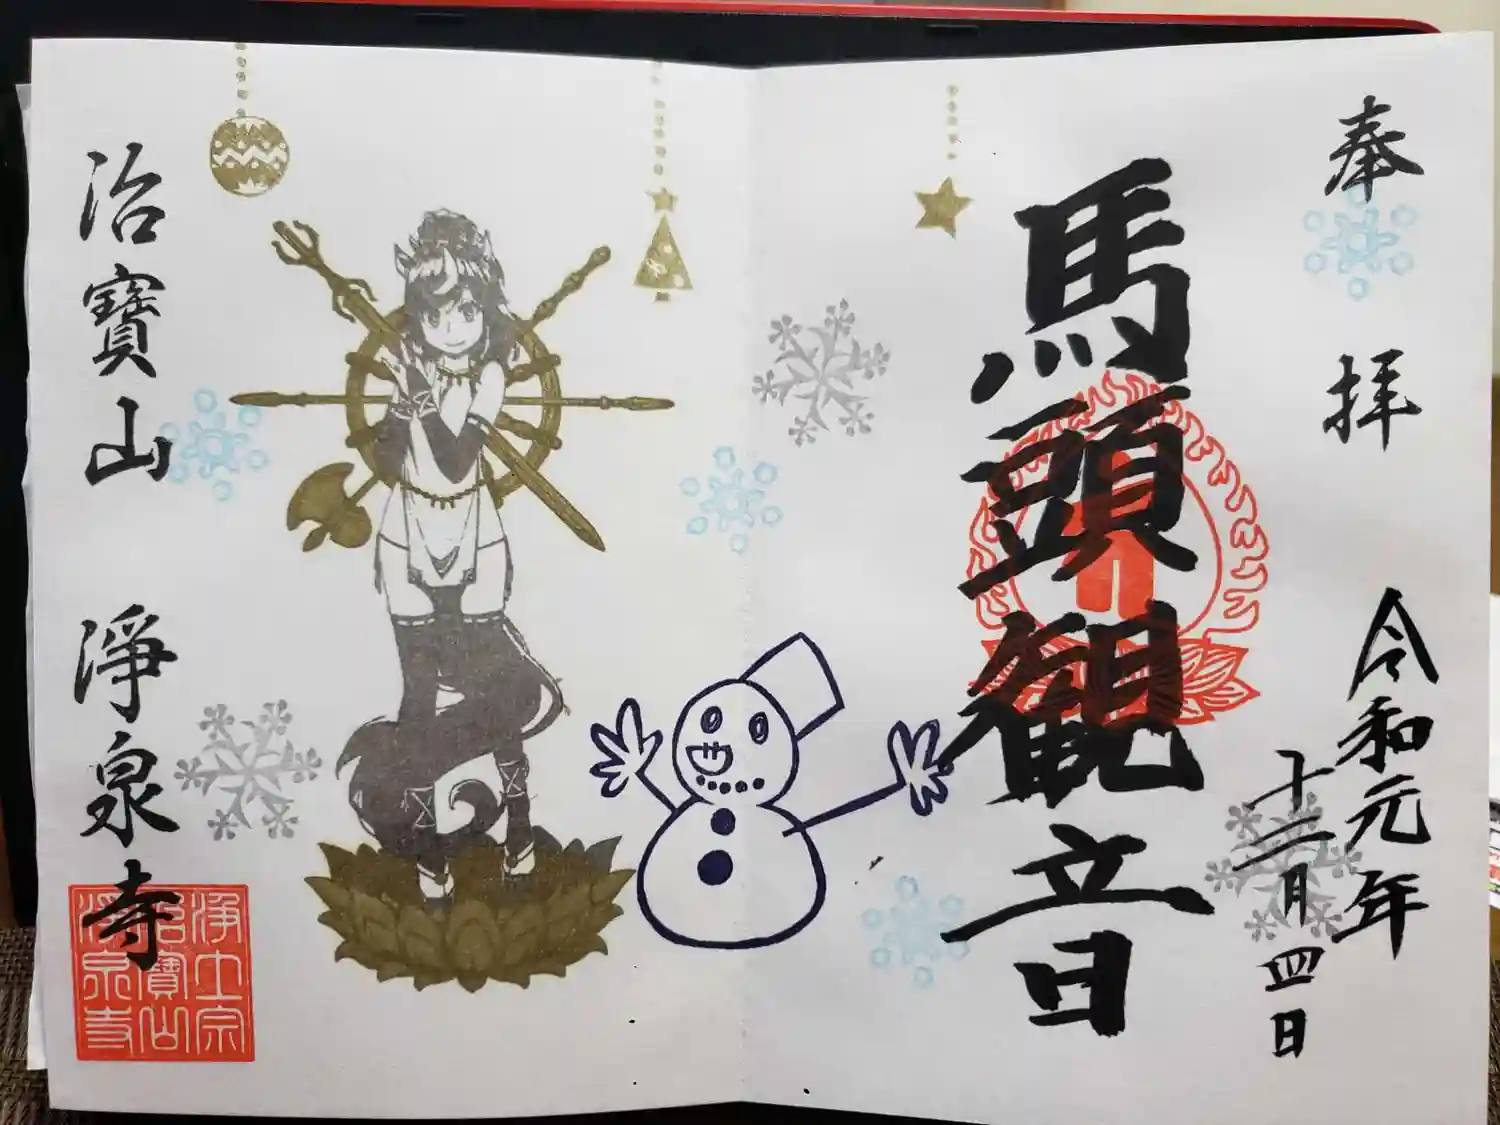 奉拝
令和元年
十二月四日
馬頭観音
治寳山 淨泉寺
浄土宗
治寳山
淨泉寺